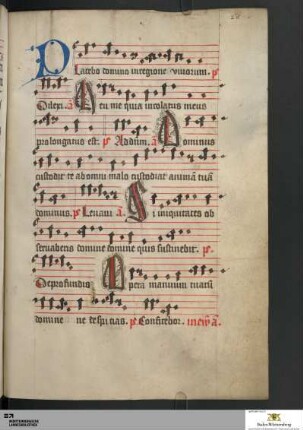 Placebo domino in regione vivorum. ps.
Dilexi. a. Heu me quia incolatus meus
prolongatus est. ps. Ad dnm. a. Dominus
custodit te ab omni malo custodiat animã tuã
dominus. ps. Levavi a. Si iniquitates ob
servaveris domine domine quis sustinebit. ps.
De profundis a. Opera manuum tuarũ
domine ne despicias. ps. Confitebor.
Baden-Württemberg